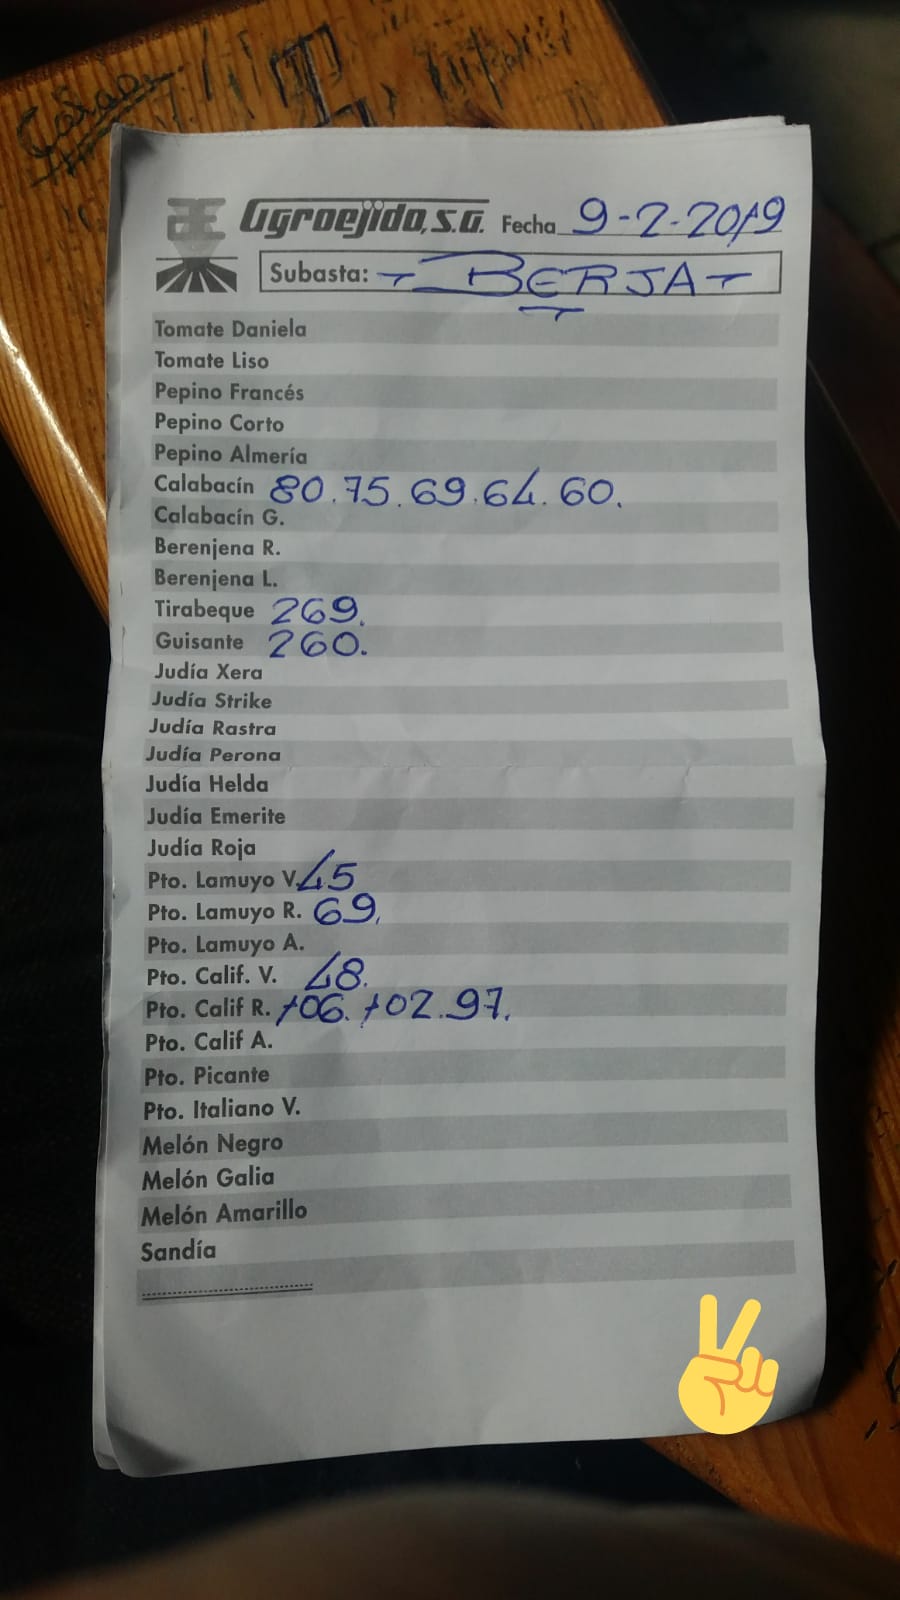 Agroejido, S.A. Fecha 9-2-2019
Subasta: - BERJA -
Tomate Daniela
Tomate Liso
Pepino Francés
Pepino Corto
Pepino Almería
Calabacín 80.75.69.64.60.
Calabacín G.
Berenjena R.
Berenjena L.
Tirabeque 269.
Guisante 260.
Judía Xera
Judía Strike
Judía Rastra
Judía Perona
Judía Helda
Judía Emerite
Judía Roja
Pto. Lamuyo V. 45
Pto. Lamuyo R. 69.
Pto. Lamuyo A.
Pto. Calif. V. 48.
Pto. Calif R. 106. 102. 97.
Pto. Calif A.
Pto. Picante
Pto. Italiano V.
Melón Negro
Melón Galia
Melón Amarillo
Sandía